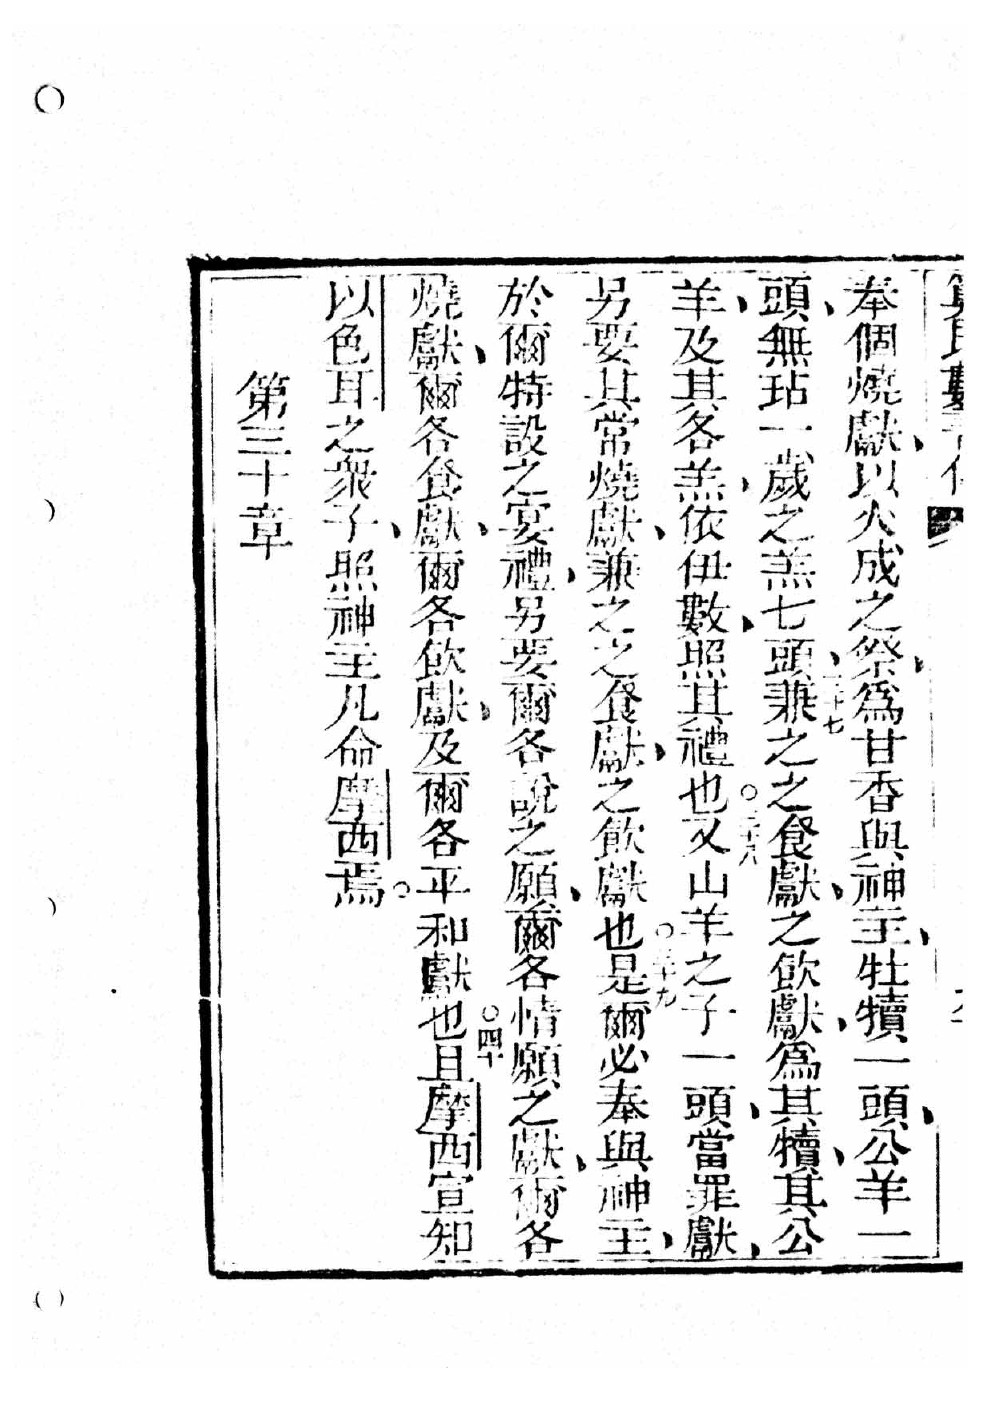 奉個燒獻、以火成之祭、爲甘香與神主、牡犢一頭、公羊一
頭、無玷一歲之羔七頭、三十七兼之之食獻、之飲獻、爲其犢、其公
羊、及其各羔、依伊數、照其禮也○三十八又山羊之子一頭、當罪獻、
另要其常燒獻、兼之之食獻、之飲獻也○三十九是爾必奉與神主、
於爾特設之宴禮、另要爾各說之願、爾各情願之獻、爾各
燒獻、爾各食獻、爾各飲獻、及爾各平和獻也○四十且摩西宣知
以色耳之衆子、照神主凡命摩西焉○
第三十章